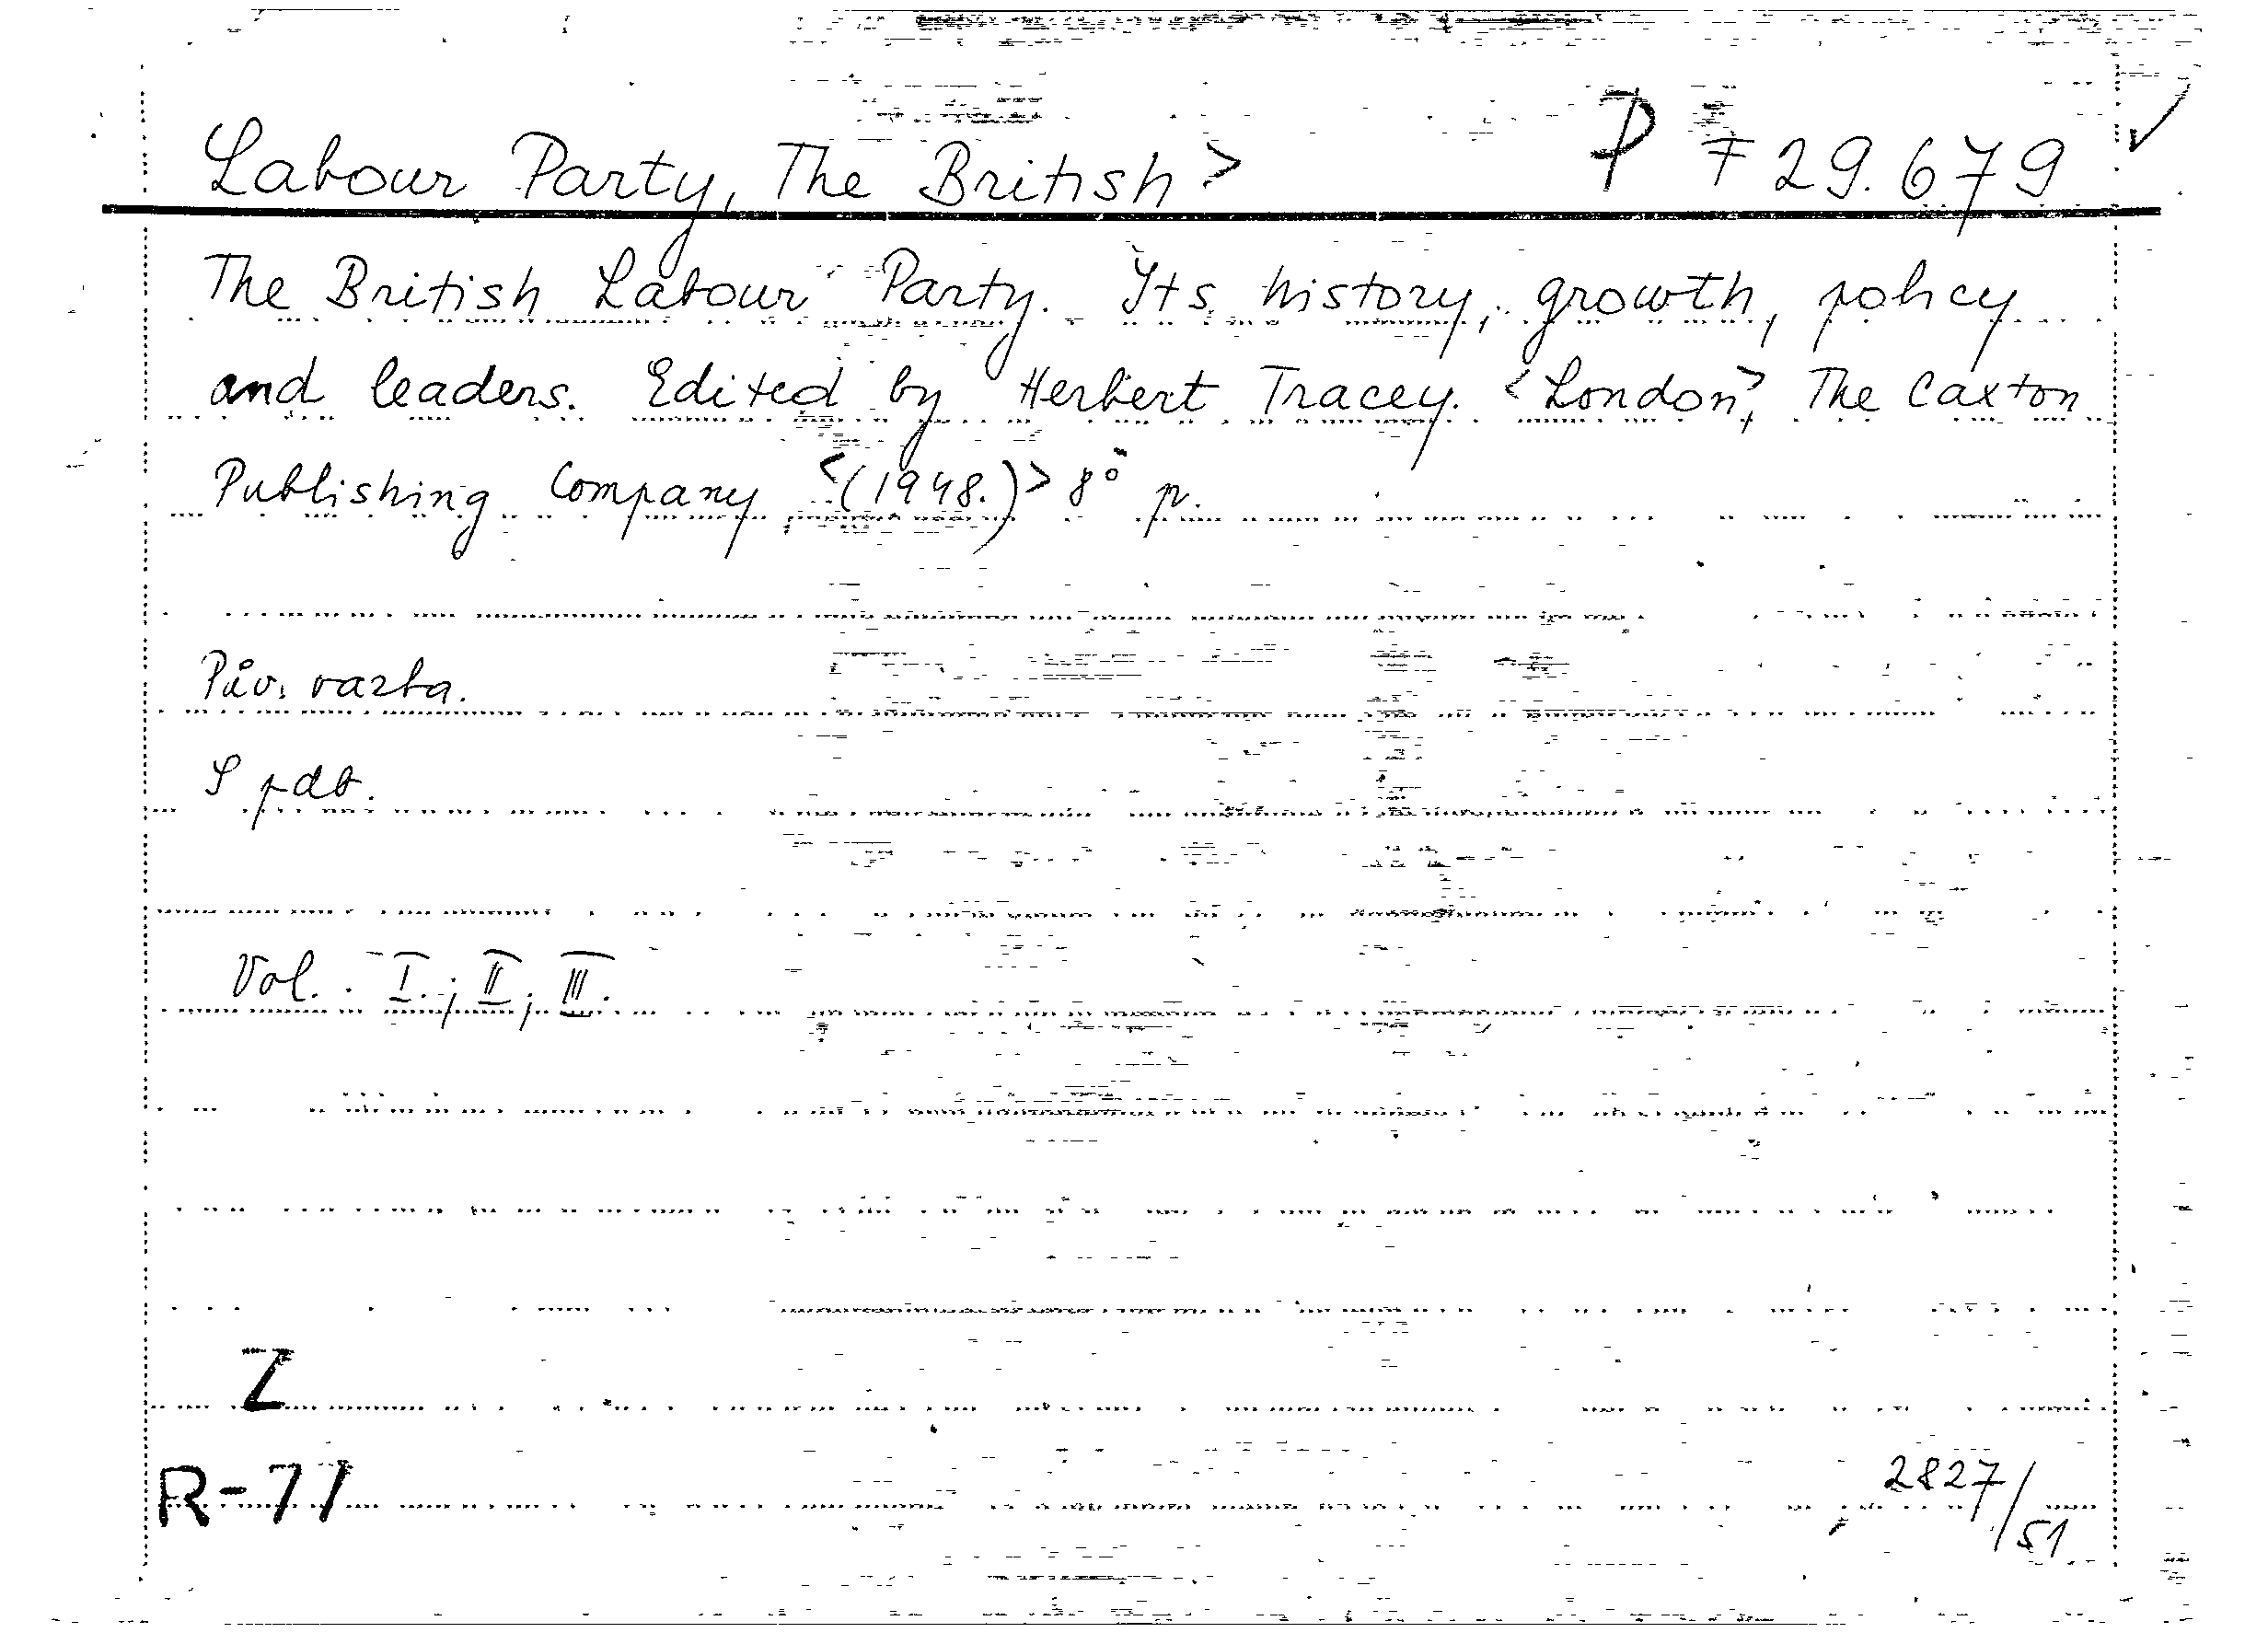 Labour Party, The British> P F 29.679
The British Labour Party. Its history, growth, policy
and leaders. Edited by Herbert Tracey. <London>, The Caxton
Publishing Company <(1948.)> 8° p.
Pův. vazba.
S pdt.
Vol. I.; II; III.
Z
R-77
2827/51